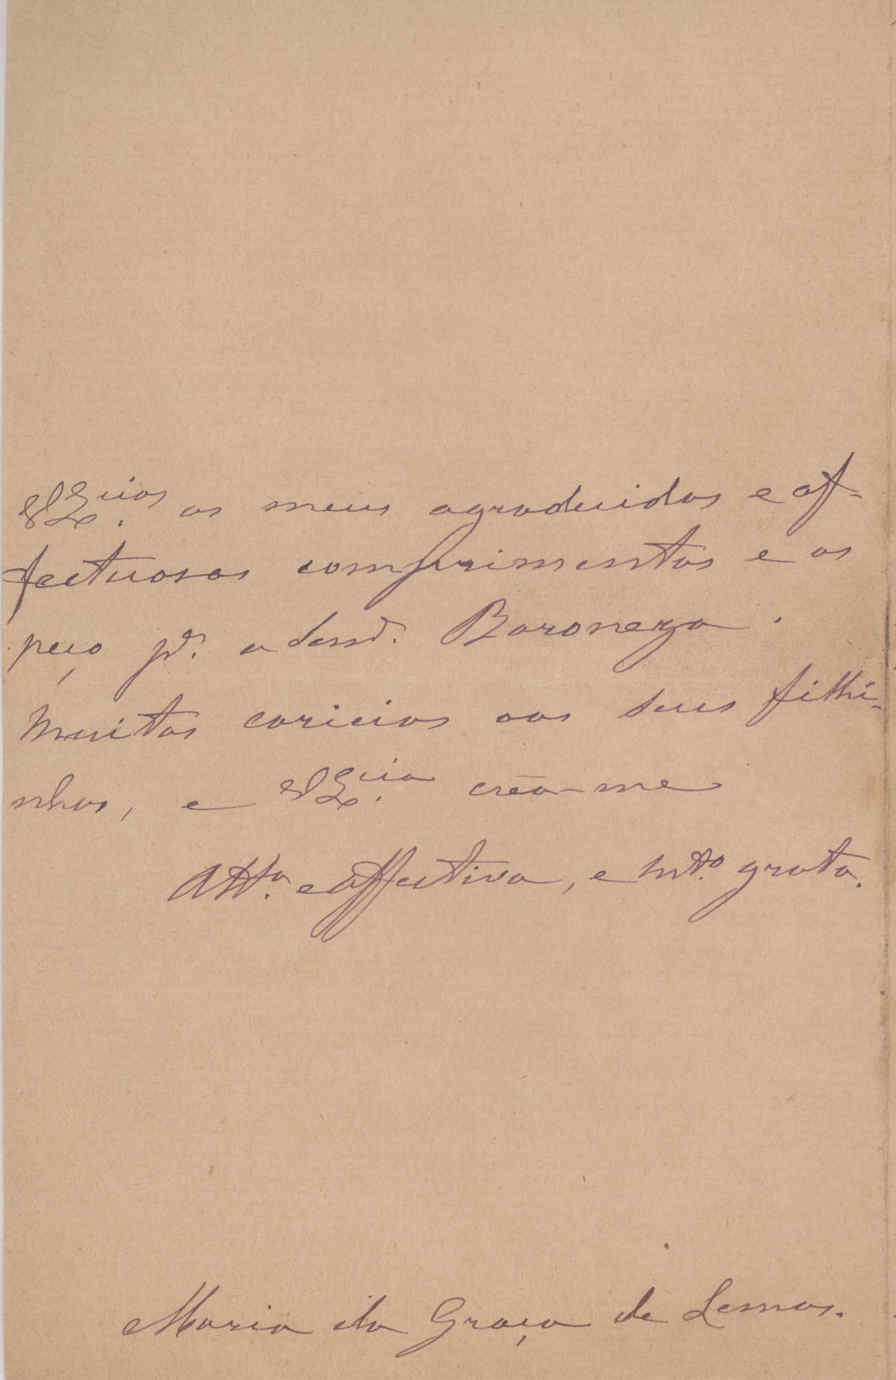 V Ex.cias os meus agradecidos e af-
fectuosos comprimentos e os
peço p.ª a Senr.ª Baroneza.
Muitas caricias aos seus filhi-
nhos, e V Ex.cia crêa-me
Att.ª e affectiva, e mt.º grata.
Maria da Graça de Lemos.